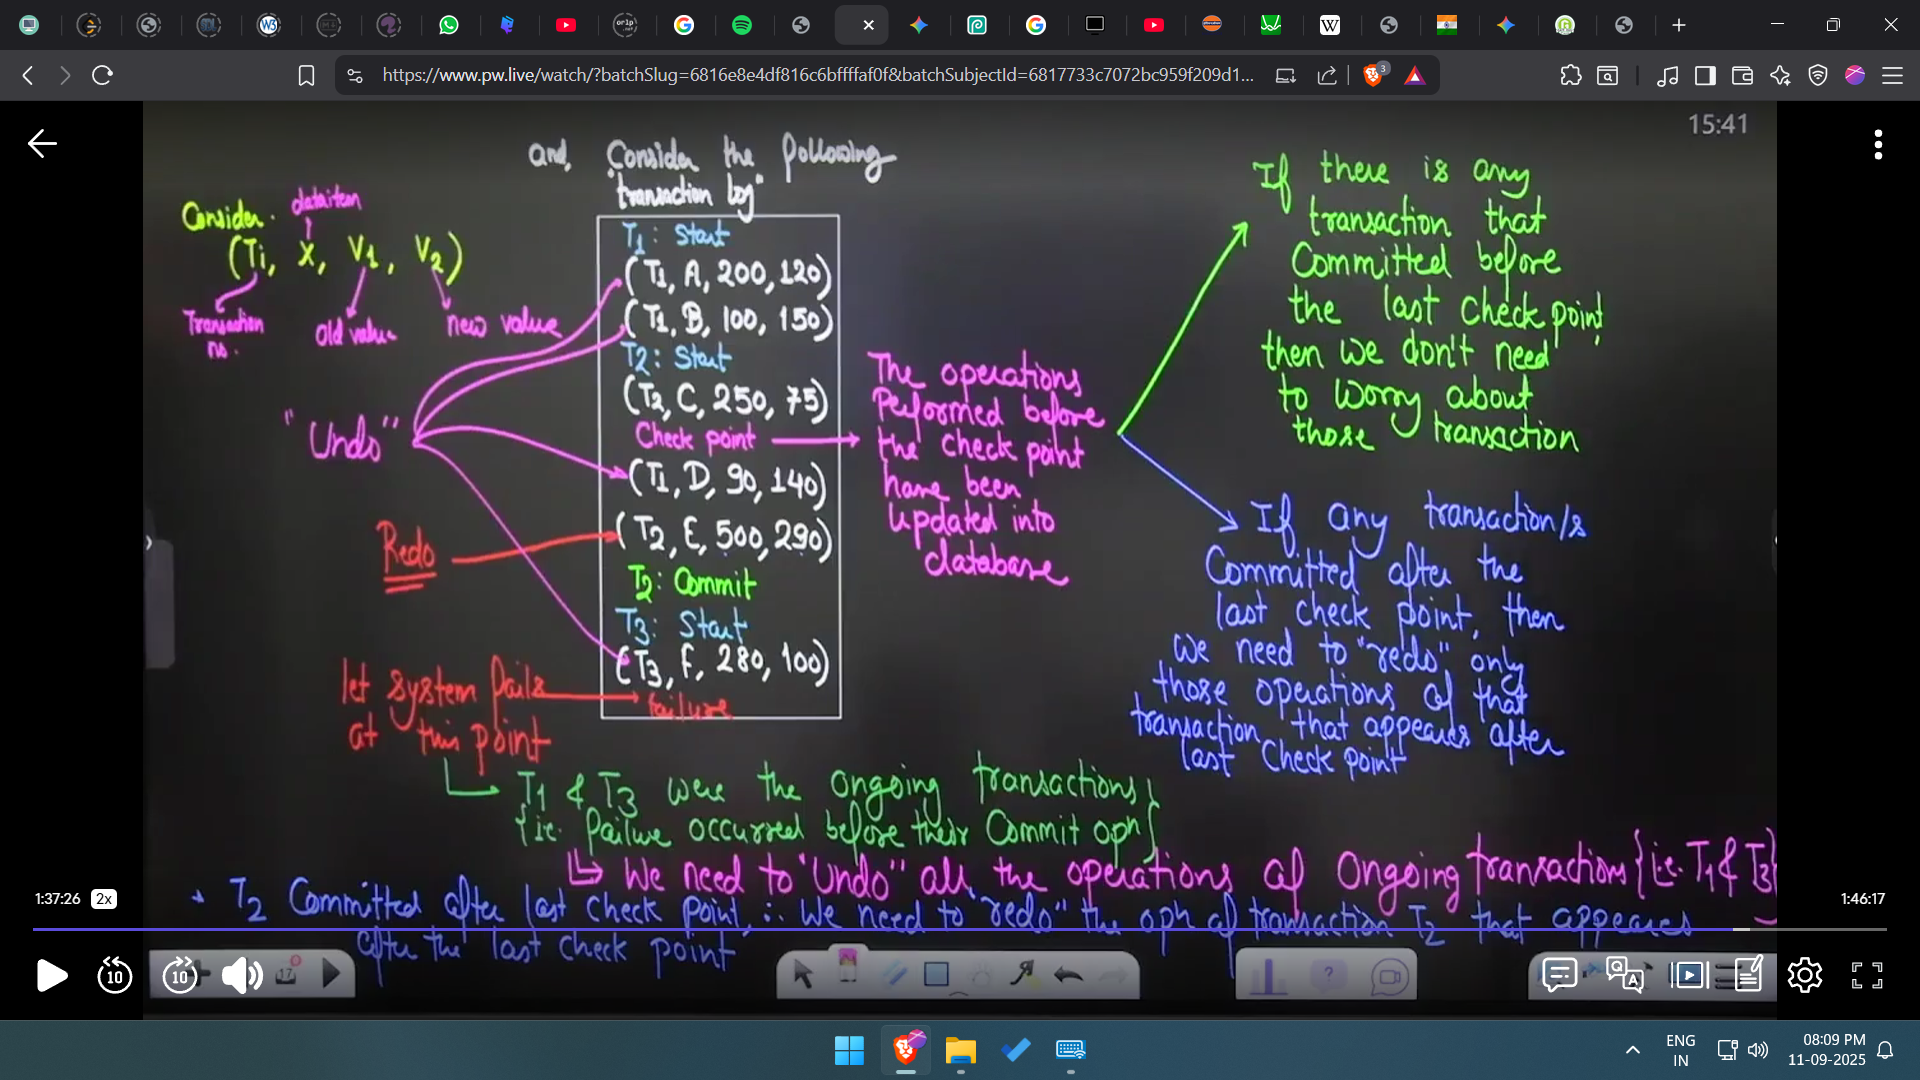 https://www.pw.live/watch/?batchSlug=6816e8e4df816c6bffffaf0f&batchSubjectId=6817733c7072bc959f209d1...
3
15:41
and, Consider the following
"transaction log"
Consider.
dataitem
(Ti, X, V1, V2)
Transaction
no.
old value
new value
T1: Start
(T1, A, 200, 120)
(T1, B, 100, 150)
T2: Start
(T2, C, 250, 75)
Check point
(T1, D, 90, 140)
(T2, E, 500, 290)
T2: Commit
T3: Start
(T3, F, 280, 100)
failure
"Undo"
Redo
let system fails
at this point
The operations
Performed before
the check point
have been
updated into
database
If there is any
transaction that
Committed before
the last check point,
then we don't need
to worry about
those transaction
If any transaction/s
Committed after the
last check point, then
we need to "redo" only
those operations of that
transaction that appears after
last check point
T1 & T3 were the ongoing transactions
{i.e. failure occurred before their Commit opn}
We need to "Undo" all the operations of Ongoing transactions {i.e. T1 & T3}
T2 Committed after last check point, ∴ we need to "redo" the opn of transaction T2 that appears
after the last check point
1:37:26
2x
1:46:17
10
10
17
ENG
IN
08:09 PM
11-09-2025